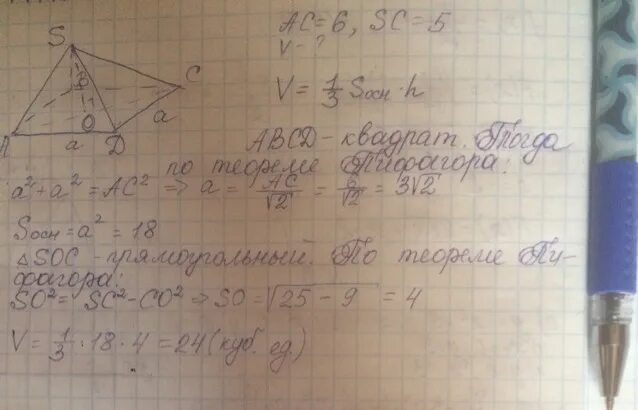 AC=6, SC=5
V-?
V = 1/3 Sосн·h
S
C
a
O
a
D
ABCD-квадрат. Тогда
по теореме Пифагора:
a²+a² = AC² ⇒ a = AC/√2 = 6/√2 = 3√2
Sосн=a² = 18
△SOC - прямоугольный. По теореме Пи-
фагора:
SO² = SC²-CO² ⇒ SO = √25-9 = 4
V = 1/3 · 18 · 4 = 24 (куб. ед.)